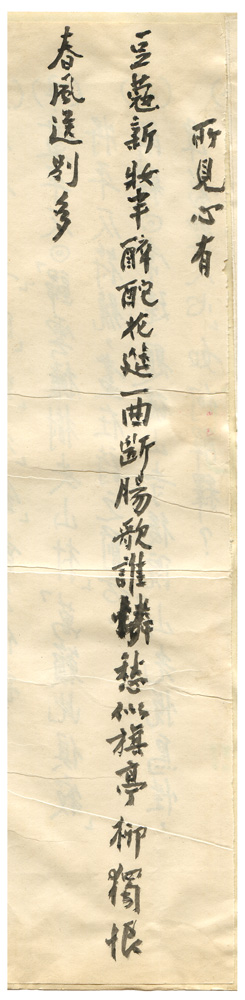 所見心有
豆蔻新妝半醉酡花筵一曲斷腸歌誰憐愁似旗亭柳獨恨
春風送別多